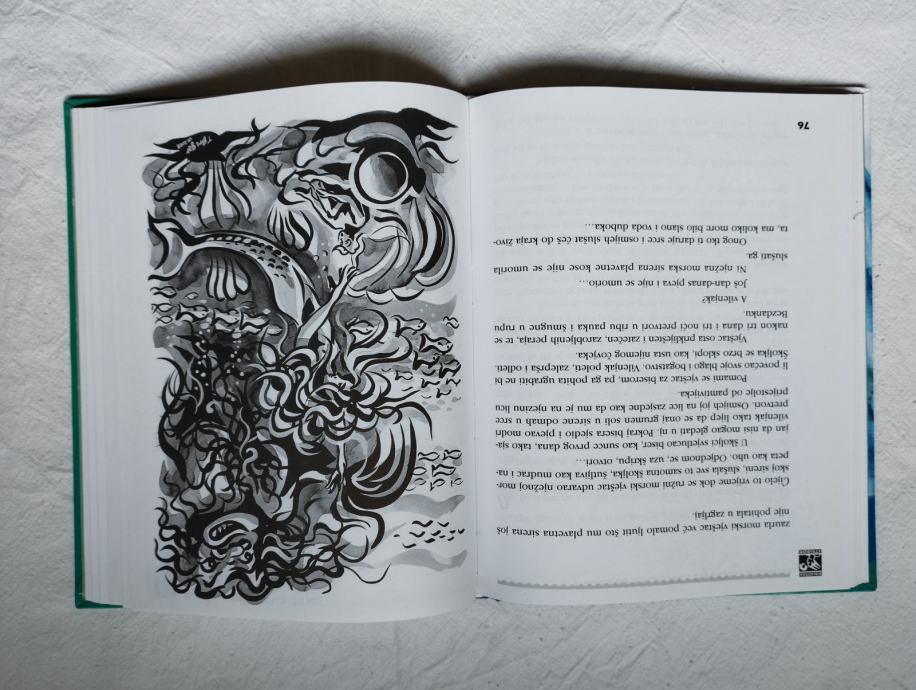 zaurla morski vještac već pomalo ljutit što mu plavetna sirena još
nije pohitala u zagrljaj.
Cijelo to vrijeme dok se ružni morski vještac udvarao nježnoj mor-
skoj sireni, slušala sve to samotna školjka, šutljiva kao mudrac i na-
peta kao uho. Odjednom se, uza škripu, otvori…
U školjci svjetlucao biser, kao sunce prvog dana, tako sja-
jan da nisi mogao gledati u nj. Pokraj bisera sjedio i pjevao modri
vilenjak tako lijep da se onaj grumen soli u sirene odmah u srce
pretvori. Osmijeh joj na lice zasjedne kao da mu je na njezinu licu
prijestolje od pamtivijeka.
Pomami se vještac za biserom, pa ga pohita ugrabiti ne bi
li povećao svoje blago i bogatstvo. Vilenjak poleti, zaleprša i odleti.
Školjka se brzo sklopi, kao usta nijemog čovjeka.
Vještac osta prikliješten i zatečen, zarobljenih peraja, te se
nakon tri dana i tri noći pretvori u ribu pauka i šmugne u rupu
Bezdanku.
A vilenjak?
Još dan-danas pjeva i nije se umorio…
Ni nježna morska sirena plavetne kose nije se umorila
slušati ga.
Onog tko ti daruje srce i osmijeh slušat ćeš do kraja živo-
ta, ma koliko more bilo slano i voda duboka…
76